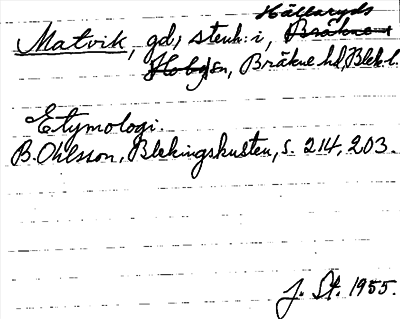 Hällaryds
Matvik, gd, stenh. i, Bräkne
HobySn, Bräkne hd, Blek. l.
Etymologi.
B. Ohlsson, Blekingskusten, s. 214, 203.
J. St. 1955.